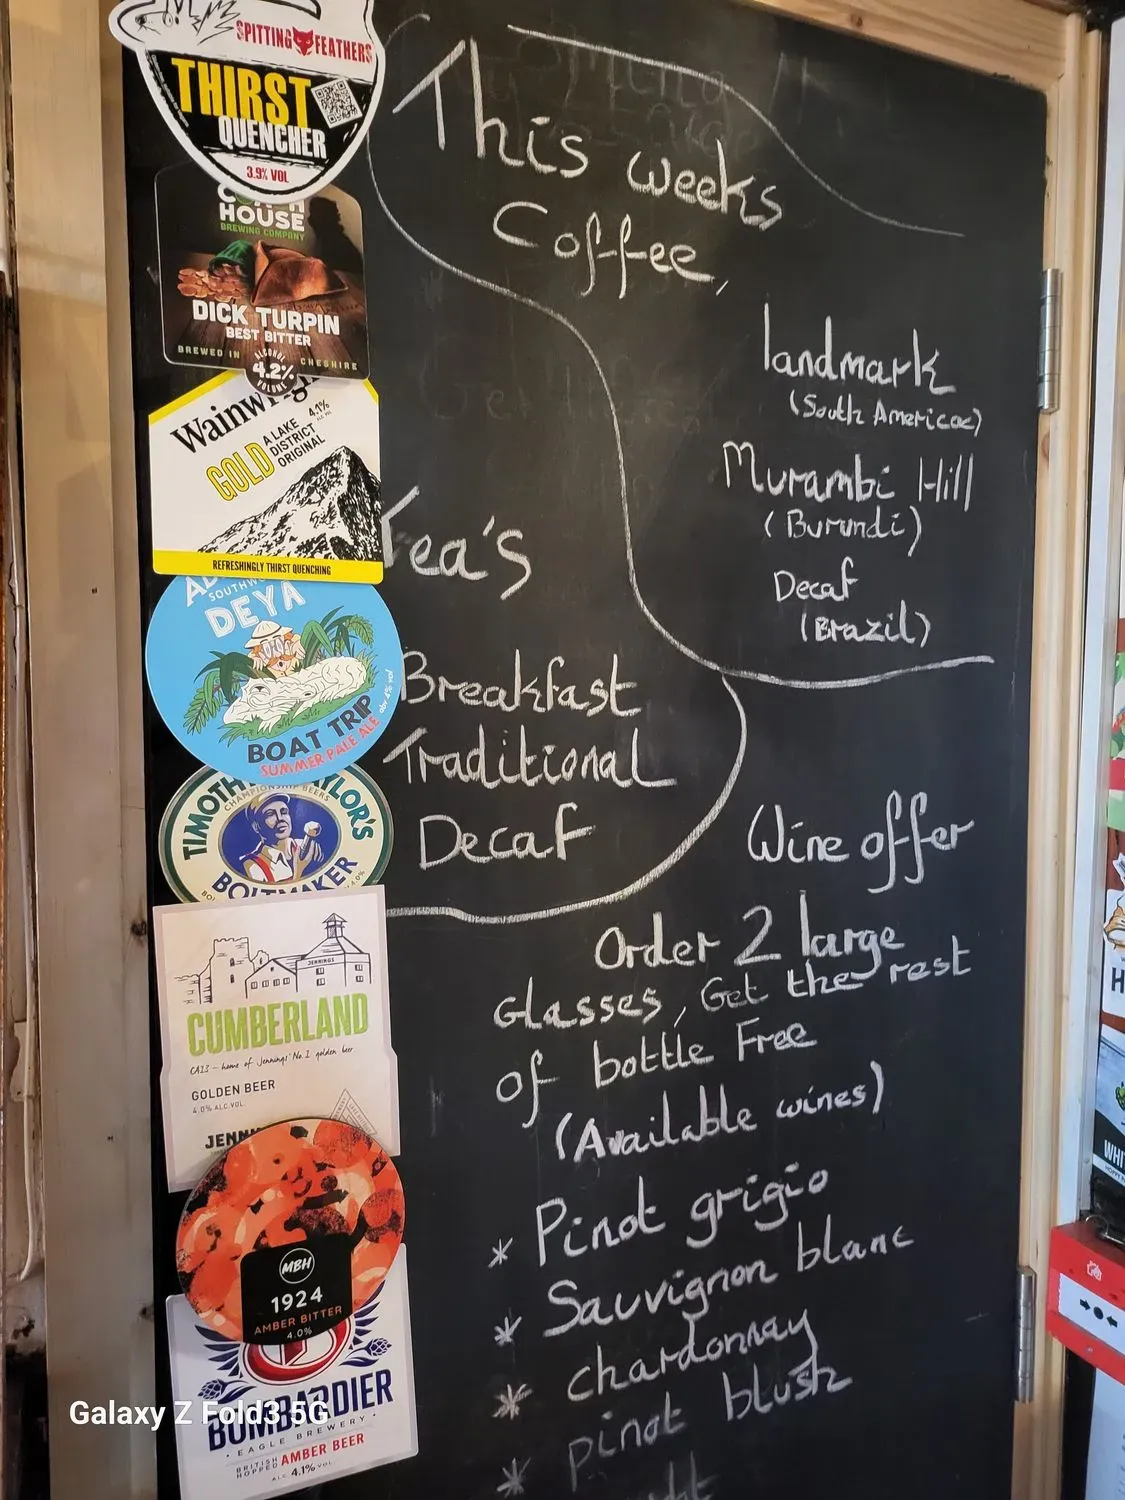 SPITTING FEATHERS
THIRST
QUENCHER
3.9% VOL
HOUSE
BREWING COMPANY
DICK TURPIN
BEST BITTER
BREWED IN CHESHIRE
ALCOHOL
4.2%
VOLUME
4.1%
GOLD
A LAKE
DISTRICT
ORIGINAL
REFRESHINGLY THIRST QUENCHING
DEYA
BOAT TRIP
SUMMER PALE ALE
abv 4% vol
CHAMPIONSHIP BEERS
BOLTMAKER
JENNINGS
CUMBERLAND
CA13 – home of Jennings' No.1 golden beer
GOLDEN BEER
4.0% ALC.VOL.
MBH
1924
AMBER BITTER
4.0%
BOMBARDIER
EAGLE BREWERY
BRITISH
HOPPED AMBER BEER
ALC 4.1% VOL
This weeks
Coffee,
landmark
(South Americae)
Murambi Hill
(Burundi)
Decaf
(Brazil)
Tea's
Breakfast
Traditional
Decaf
Wine offer
Order 2 large
Glasses, Get the rest
of bottle Free
(Available wines)
* Pinot grigio
* Sauvignon blanc
* chardonnay
* pinot blush
Galaxy Z Fold3 5G